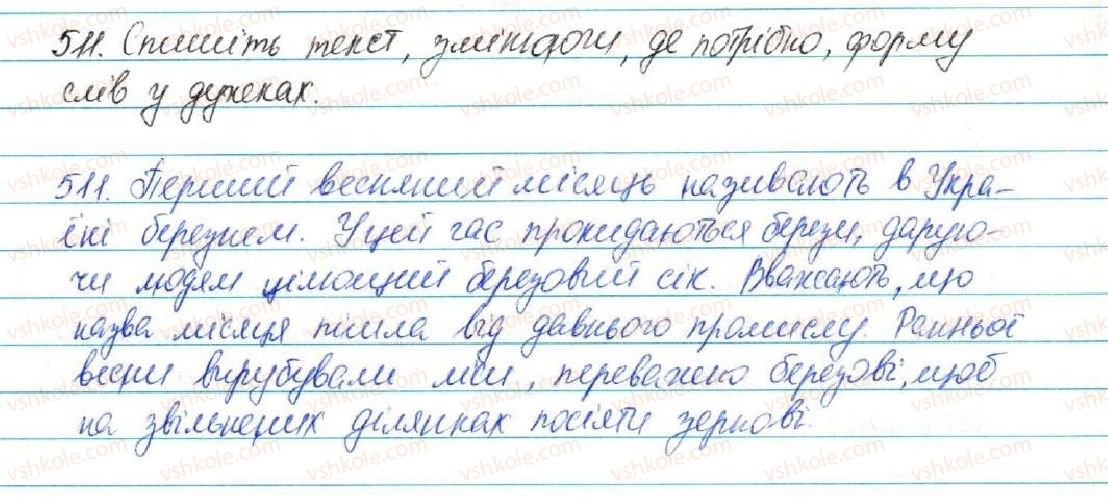 511. Спишіть текст, змінюючи, де потрібно, форму
слів у дужках.
511. Перший весняний місяць називають в Укра-
їні березнем. У цей час прокидаються берези, дарую-
чи людям цілющий березовий сік. Вважають, що
назва місяця пішла від давнього промислу. Ранньої
весни вирубували ліси, переважно березові, щоб
на звільнених ділянках посіяти зернові.